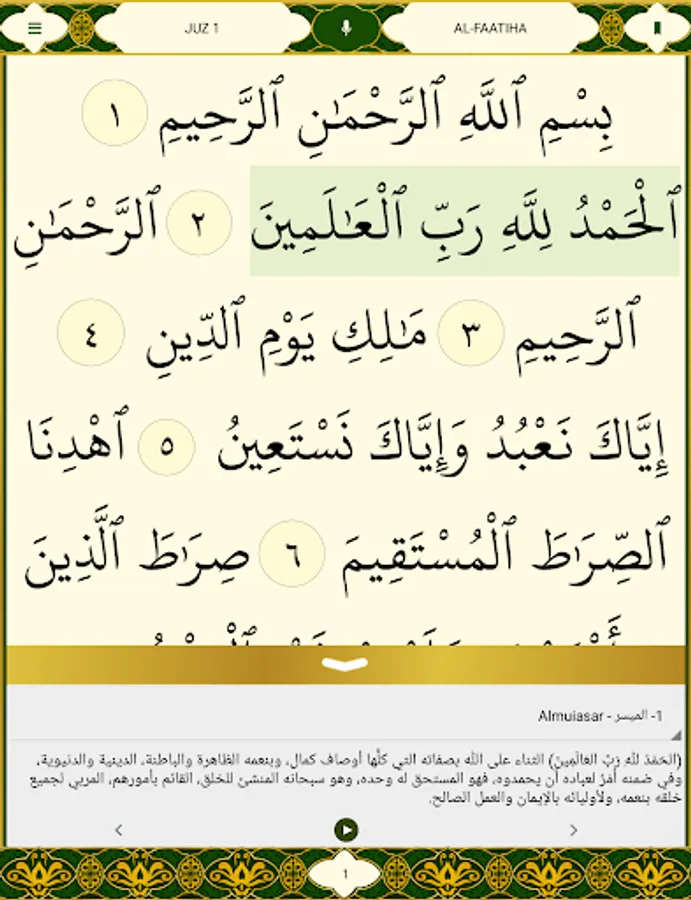 JUZ 1
AL-FAATIHA
بِسْمِ ٱللَّهِ ٱلرَّحْمَـٰنِ ٱلرَّحِيمِ ١
ٱلْحَمْدُ لِلَّهِ رَبِّ ٱلْعَـٰلَمِينَ ٢ ٱلرَّحْمَـٰنِ
ٱلرَّحِيمِ ٣ مَـٰلِكِ يَوْمِ ٱلدِّينِ ٤
إِيَّاكَ نَعْبُدُ وَإِيَّاكَ نَسْتَعِينُ ٥ ٱهْدِنَا
ٱلصِّرَٰطَ ٱلْمُسْتَقِيمَ ٦ صِرَٰطَ ٱلَّذِينَ
1- الميسر - Almuiasar
(الحَمْدُ للهِ رَبِّ العَالَمِينَ) الثناء على الله بصفاته التي كلُّها أوصاف كمال، وبنعمه الظاهرة والباطنة، الدينية والدنيوية،
وفي ضمنه أَمْرٌ لعباده أن يحمدوه، فهو المستحق له وحده، وهو سبحانه المنشئ للخلق، القائم بأمورهم، المربي لجميع
خلقه بنعمه، ولأوليائه بالإيمان والعمل الصالح.
1